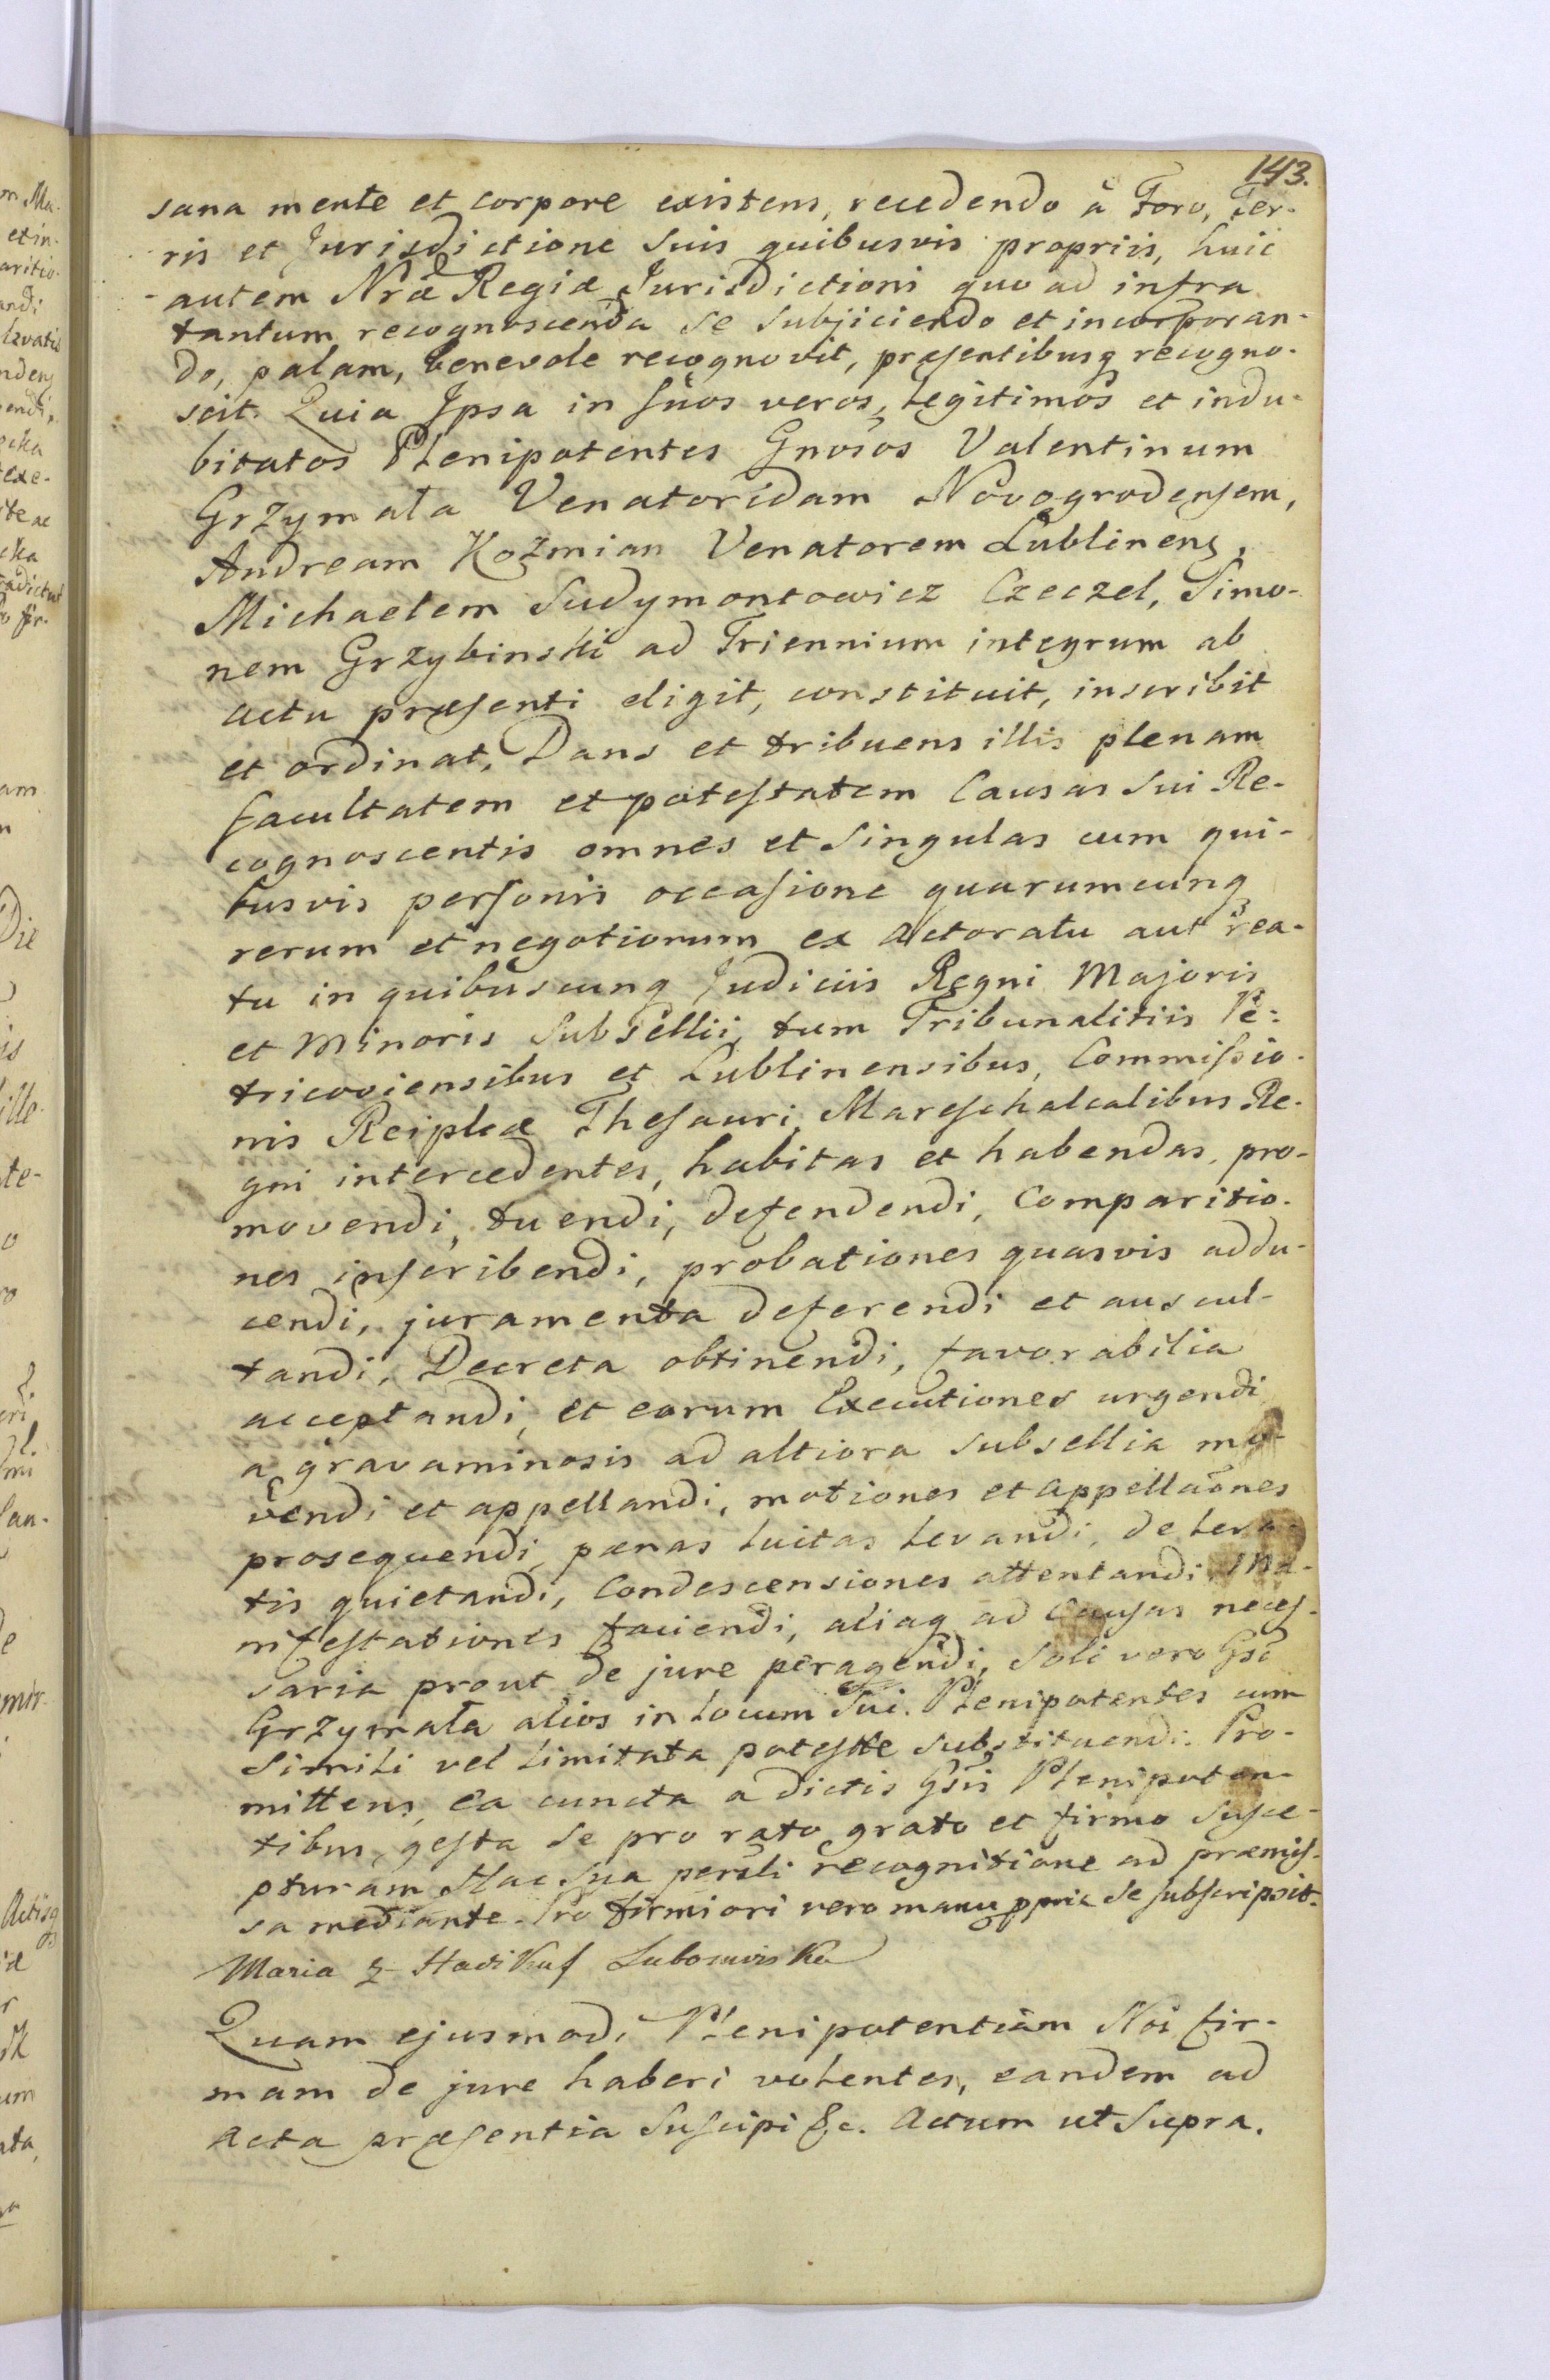 143.
sana mente et corpore existens, recedendo à Foro, Ter-
ris et Jurisdictione Suis quibusvis propriis, huic
autem Nrae Regiae Jurisdictioni quo ad infra
tantum recognoscenda se subjiciendo et incorporan-
do, palam, benevole recognovit, praesentibusq recogno-
scit. Quia Ipsa in suos veros, legitimos et indu-
bitatos Plenipotentes Gnosos Valentinum
Grzymała Venatoridam Novogrodensem,
Andream Kozmian Venatorem Lublinens,
Michaelem Sudymontowicz Czeczel, Simo-
nem Grzybinski ad Triennium integrum ab
actu praesenti eligit, constituit, inscribit
et ordinat. Dans et tribuens illis plenam
facultatem et potestatem Causas Sui Re-
cognoscentis omnes et singulas cum qui-
busvis personis occasione quarumcunq
rerum et negotiorum ex Actoratu aut rea-
tu in quibuscunq Judiciis Regni Majoris
et Minoris Subsellii, tum Tribunalitiis Pe-
tricoviensibus et Lublinensibus, Commissio-
nis Reiplcae Thesauri, Mareschalcalibus Re-
gni intercedentes, habitas et habendas, pro-
movendi, tuendi, defendendi, Comparitio-
nes inscribendi, probationes quasvis addu-
cendi, juramenta deferendi et auscul-
tandi, Decreta obtinendi, favorabilia
acceptandi, et eorum Executiones urgendi
a gravaminosis ad altiora subsellia mo-
vendi et appellandi, motiones et appellaones
prosequendi, paenas luitas levandi, de leva-
tis quietandi, Condescensiones attentandi, Ma-
nifestationes faciendi, aliaq ad Causas neces-
saria prout de jure peragendi, soli vero Gso
Grzymała alios in locum Sui Plenipotentes cum
Simili vel limitata potestte substituendi. Pro-
mittens, ea cuncta a dictis Gsis Plenipoten-
tibus, gesta se pro rato grato et firmo susce-
pturam Hac Sua persli recognitione ad praemis-
sa mediante. Pro firmiori vero manu ppria se subscripsit.
Maria z Hadikuf Lubomirska
Quam ejusmodi Plenipotentiam Nos fir-
mam de jure haberi volentes, eandem ad
Acta praesentia Suscipi &c. Actum ut Supra.